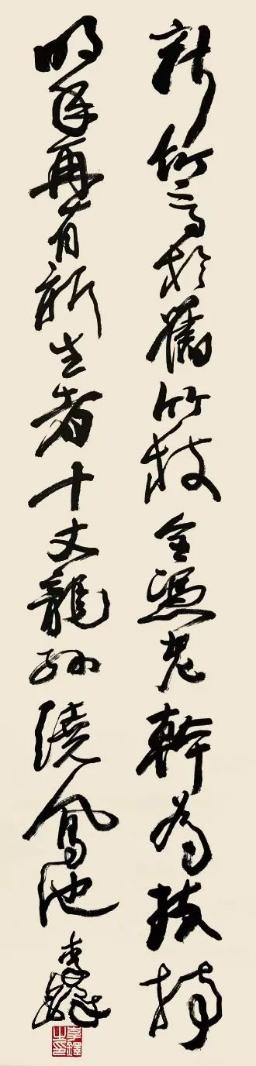 新竹高於舊竹枝全憑老幹為扶持
明年再有新生者十丈龍孫繞鳳池
李鐸